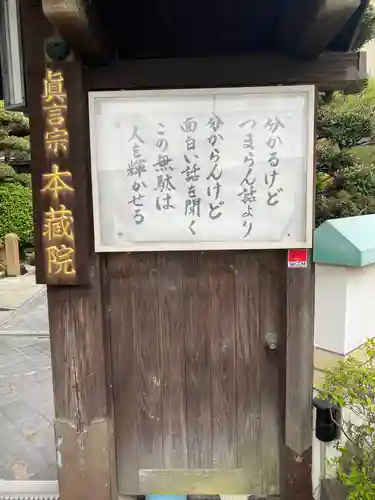 眞言宗本蔵院
分かるけど
つまらん話より
分からんけど
面白い話を聞く
この無駄は
人を輝かせる
SECOM